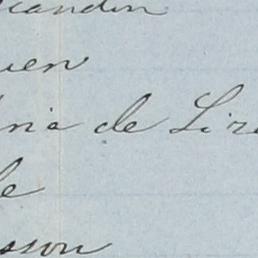 candin
uen
nia de Lir
le
sson